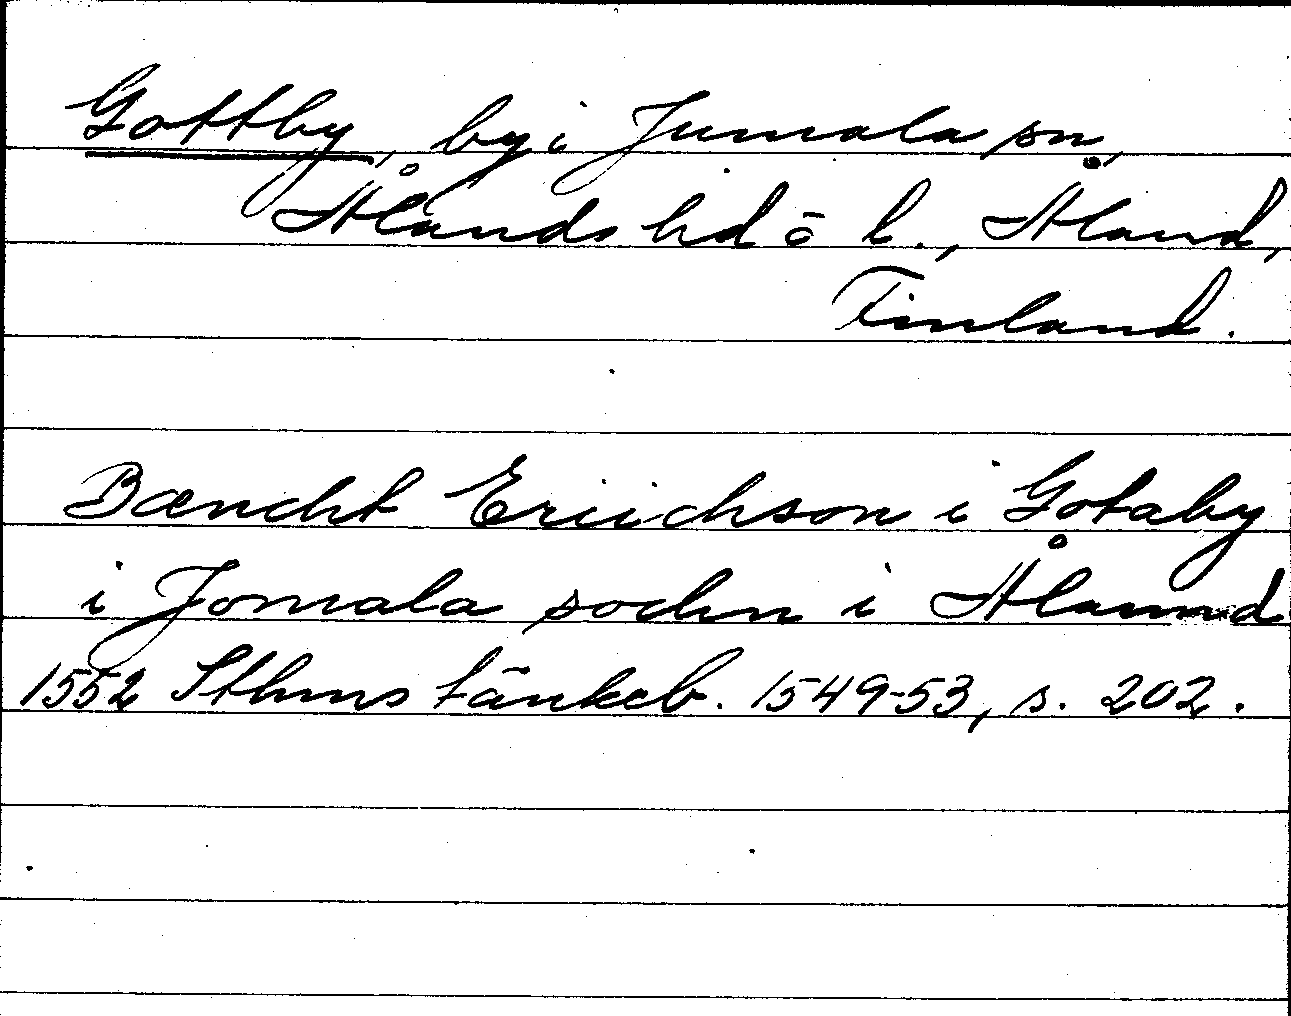 Gottby, by i Jumala sn,
Ålands hd o l., Åland,
Finland.
Bændht Eriichson i Gotaby
i Jomala sochn i Ålannd
1552 Sthms tänkeb. 1549-53, s. 202.